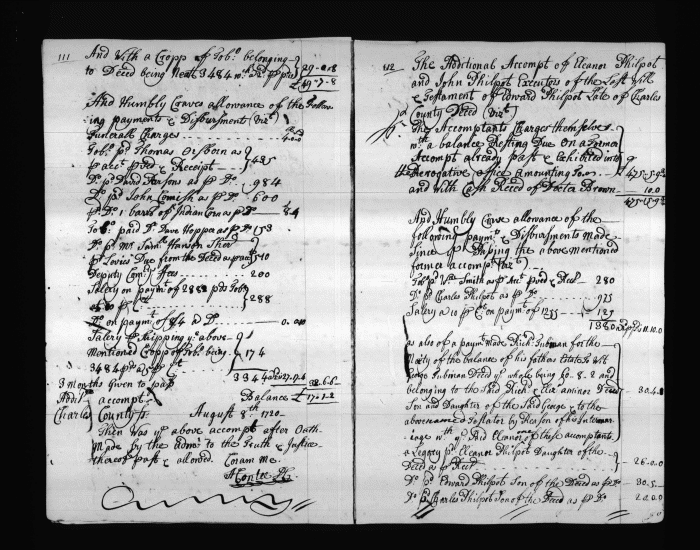 111
And With a Cropp of Tob:o belonging
to Deced being Neat 3484 29-0-8
49-7-8
And Humbly Craves allowance of the follow
ing payments & Disbursment Viz:t
Funerall Charges 4.0.0
Tob:o p:d Thomas Osborn as
p acc:t pved & Receipt 435
D:o p:d David Parsons as p D:o 984
D:o p:d John Cornish as p D:o 600
p D:o 1 barr:l of Indian Corn as p D:o 84
Tob:o paid D:o Dave Hopper as p D:o 153
D:o p:d M:r Sam:l Hanson Sher
p:r Levies Due from the Deced as p acc:t 540
Deputy Com:rs ffees 200
Salery on paym:t of 2882 p:ds Tob:o
288
D:o on paym:t of 84 a D:o 0. 00
Salery p:r Shipping y:e above
Mentioned Cropp of Tob:o being 174
3484 p:ds
3344
32-6-6
Ballance 17-1-2
3 months Given to pass
Addit:l accompt
Charles County ss. August 8th 1720
Then Was y:e above accompt after Oath
Made by the adm:x to the Truth & Justice
thereof past & allowed. Coram me
112
The Additional Accompt of Eleanor Philpot
and John Philpot Executors of the Last Will
& Testament of Edward Philpot Late of Charles
County Deced Viz:t
The Accomptants Charges themselves
with a balance Resting Due On a Former
Accompt already past & Exhibited into
Prerogative office amounting to 425-5-9
and with Cash Reced of Docter Brown 10.0
425-15-9
And Humbly Crave allowance of the
following paym:ts & Disburstments Made
Since y:e Paping the above mentioned
former accomp:t Viz:t
Tob:o p:d W:m Smith as p acc:t pved & Rec:t 280
D:o p:d Charles Philpot as p D:o 975
Salery a 10 p C:t on paym of 1255 125
1380 11.10.0
as also of a paym:t Made Rich:d Tubman for the
Moiety of the balance of his fathers Estate Viz:t
George Tubman Deced y:e whole being 60-8-2 and
belonging to the Said Rich:d & Elea:r minor 30.4.1
Son and Daughter of the Said George & to the
abovenamed Testator by Reason of his Intermar
eage with y:e Said Eleanor of these accomptants
a Legacy p:d Eleanor Philpot Daughter of the
Deced as p Rec:t 26-0.0
D:o p:d Edward Philpot Son of the Deced as p D:o 30.5
D:o p:d Charles Philpot Son of the Deced as p D:o 20.0.0